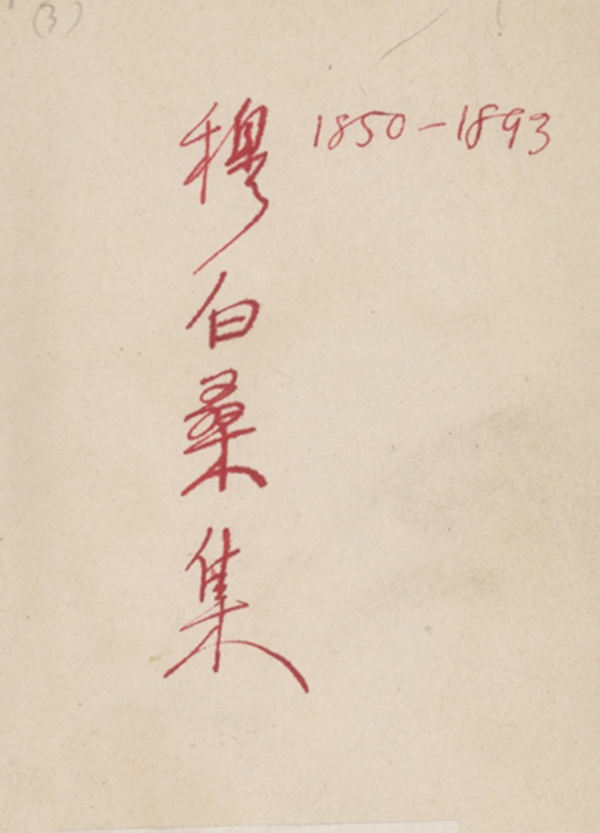 (3)
穆白桑集
1850-1893